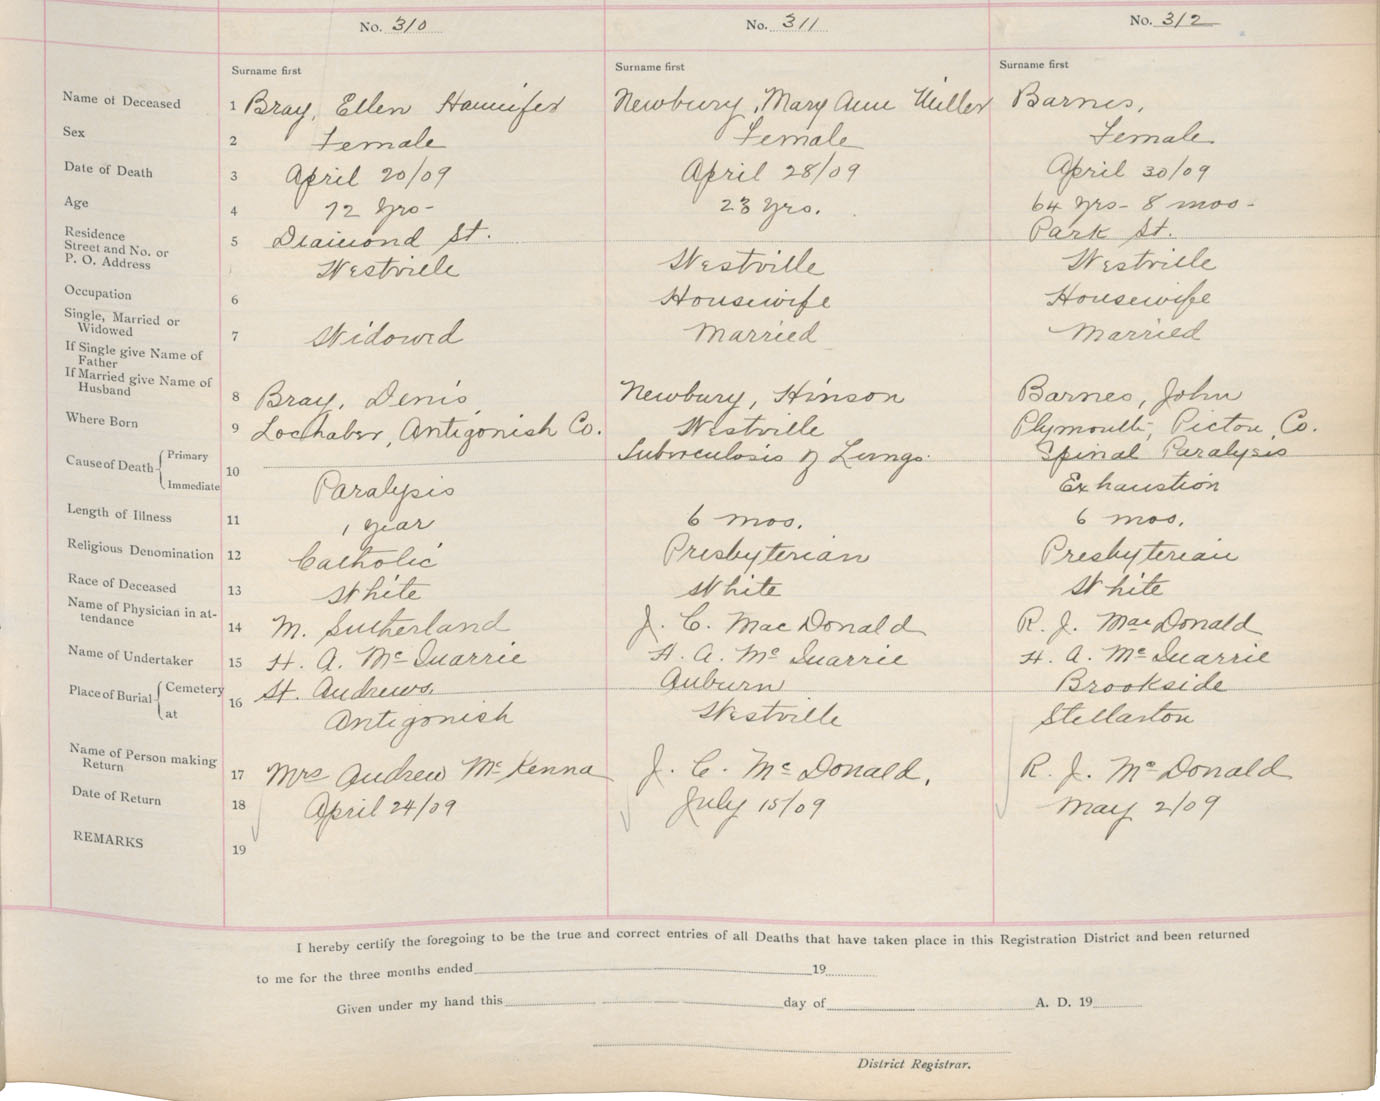 No. 310 No. 311 No. 312
Surname first Surname first Surname first
Name of Deceased 1 Bray, Ellen Hannifer Newbury, Mary Ann Miller Barnes,
Sex 2 Female Female Female
Date of Death 3 April 20/09 April 28/09 April 30/09
Age 4 72 Yrs- 23 Yrs. 64 yrs- 8 mos-
Residence 5 Diamond St. Park St.
Street and No. or
P. O. Address Westville Westville Westville
Occupation 6 Housewife Housewife
Single, Married or
Widowed 7 Widowed Married Married
If Single give Name of
Father
If Married give Name of
Husband 8 Bray, Denis Newbury, Hinson Barnes, John
Where Born 9 Lochaber, Antigonish Co. Westville Plymouth, Pictou Co.
Cause of Death Primary 10 Tuberculosis of Lungs. Spinal Paralysis
Immediate Paralysis Exhaustion
Length of Illness 11 1 year 6 mos. 6 mos.
Religious Denomination 12 Catholic Presbyterian Presbyterian
Race of Deceased 13 White White White
Name of Physician in at-
tendance 14 M. Sutherland J. C. MacDonald R. J. MacDonald
Name of Undertaker 15 H. A. McQuarrie H. A. McQuarrie H. A. McQuarrie
Place of Burial Cemetery 16 St. Andrews, Auburn Brookside
at Antigonish Westville Stellarton
Name of Person making
Return 17 Mrs Andrew McKenna J. C. McDonald, R. J. McDonald
Date of Return 18 April 24/09 July 15/09 May 2/09
REMARKS 19
I hereby certify the foregoing to be the true and correct entries of all Deaths that have taken place in this Registration District and been returned
to me for the three months ended 19
Given under my hand this day of A. D. 19
District Registrar.